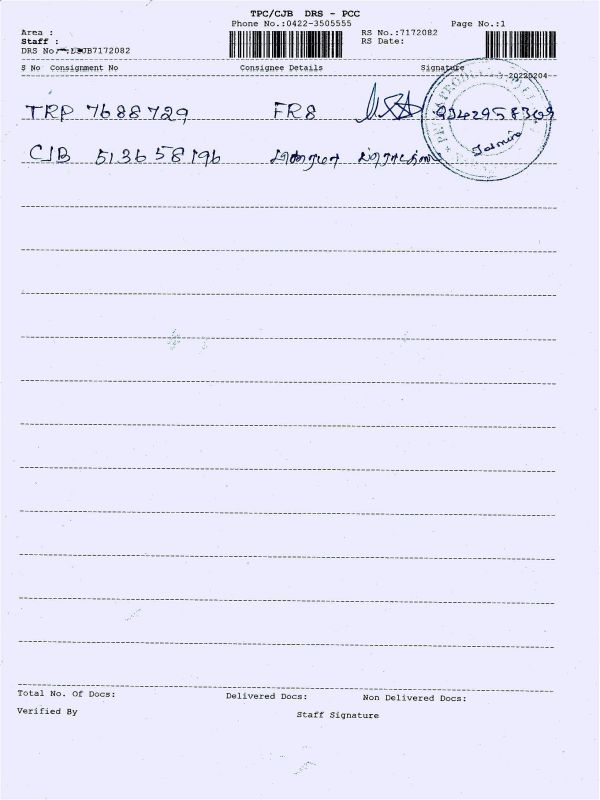 TPC/CJB DRS - PCC
Phone No.:0422-3505555
Page No.:1
Area :
Staff :
DRS No
CJB7172082
RS No.:7172082
RS Date:
S No Consignment No Consignee Details Signature
20220204
TRP 7688729 FR8
CJB 513658196
Total No. Of Docs: Delivered Docs: Non Delivered Docs:
Verified By Staff Signature